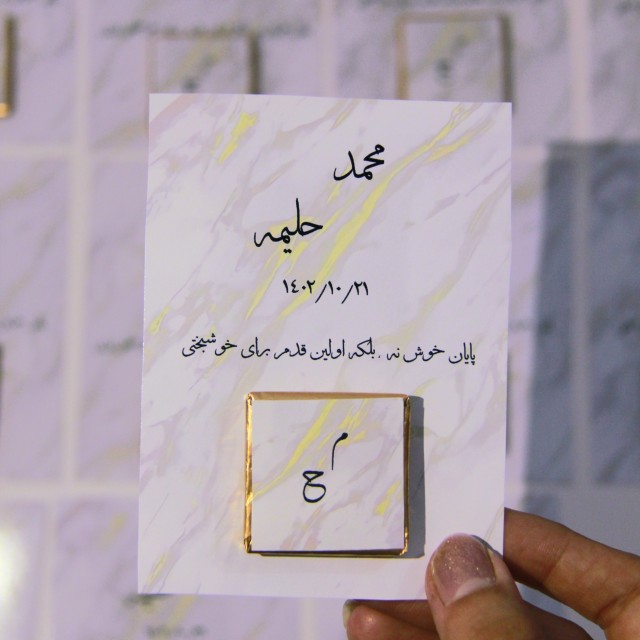 محمد
حلیمه
۱٤۰۲/۱۰/۲۱
پایان خوش نه ، بلکه اولین قدم برای خوشبختی
م
ح